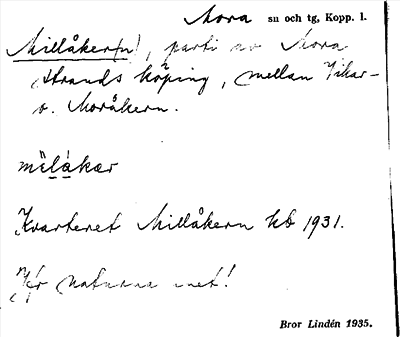 Mora sn och tg, Kopp. l.
Millåker(n), parti av Mora
strands köping, mellan Vikar-
o. Moråkern.
Kvarteret Millåkern kb 1931.
Jfr naturnamnet!
Bror Lindén 1935.